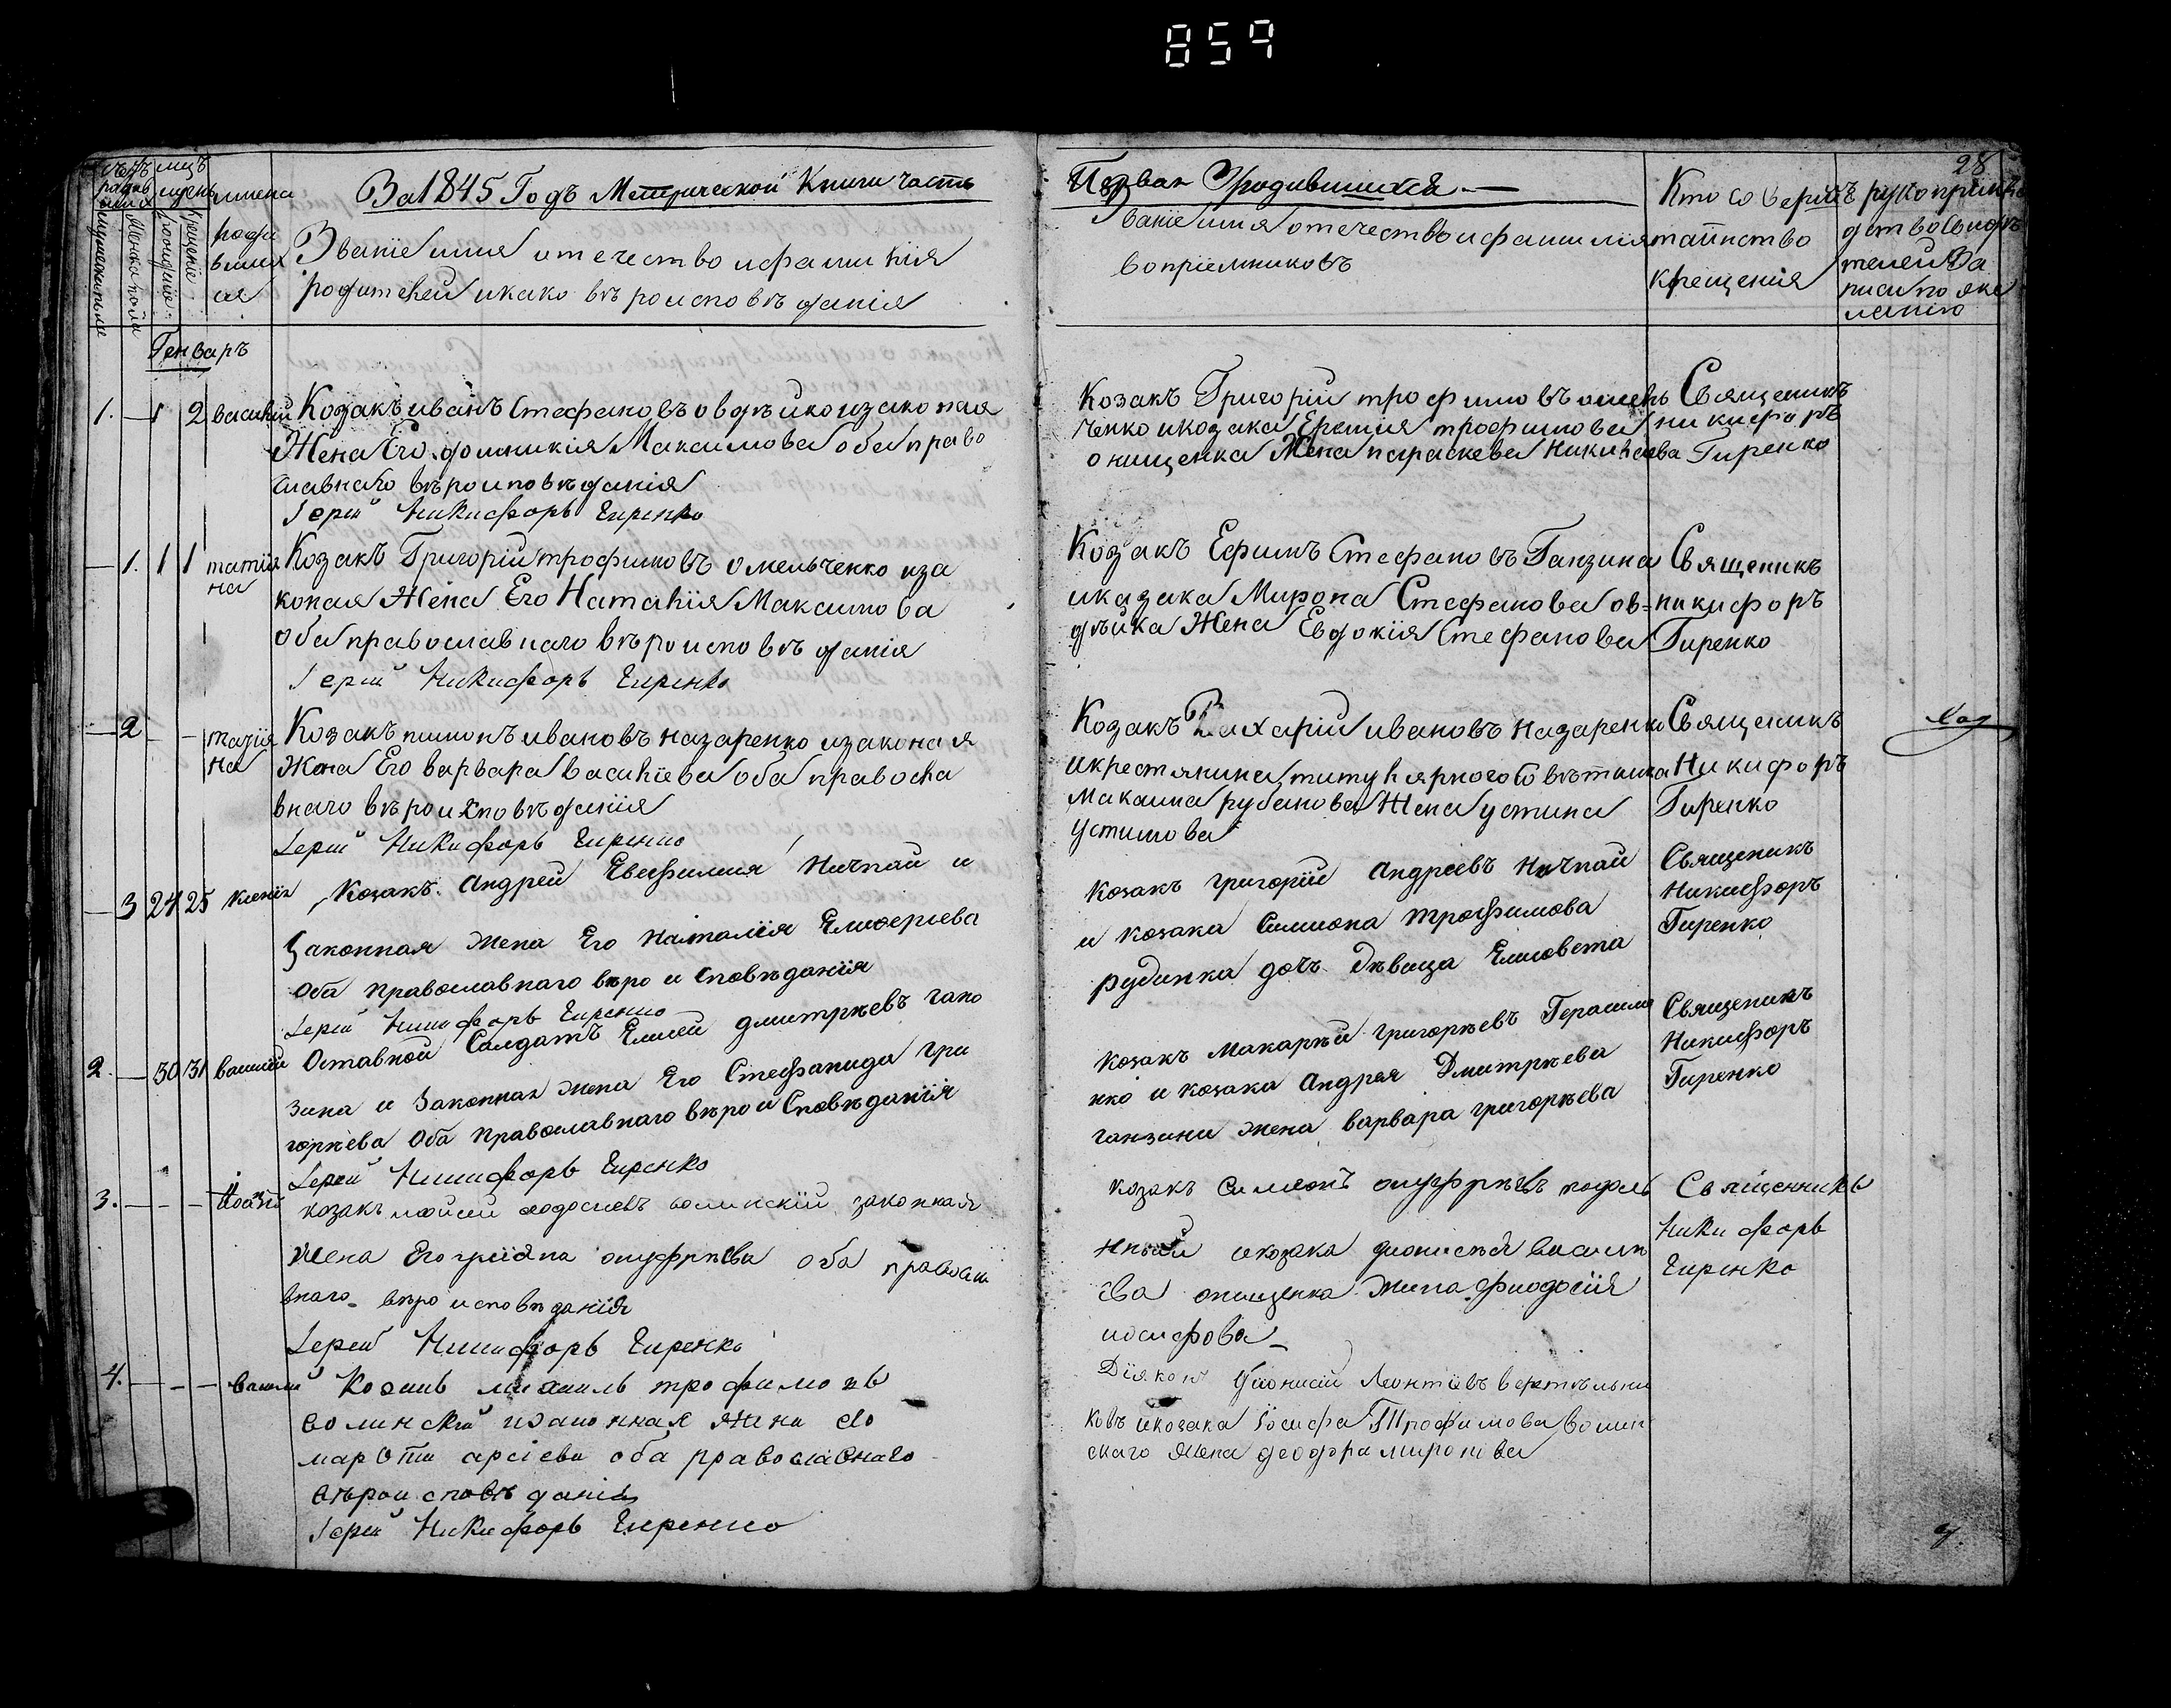 859
28
За 1845 Годъ Метрической Книги часть
Первая О родившихся
имена
роди
вших
ся
Званіе имя отечество и фамилія
родителей и како въроисповъданія
Званіе имя отечество и фамилія
воприемниковъ
Кто соверши
таинство
крещенія
Генваръ
1. — 1 2 василій
Козакъ иванъ Стефановъ овдъйко изаконая
Жена Его домникия Максимова оба право
славнаго въроиповъданія
Іерей Никифоръ Гиренко
Козакъ Григорій трофимовъ омель
ченко и козака Еремия трофимова
онищенка Жена параскева Николаева
Священикъ
никифоръ
Гиренко
— 1. 1 1 татия
на
Козакъ Григорій трофимовъ омельченко иза
коная Жена Его Наталия Максимова
оба православнаго въроисповъданія
Іерей Никифоръ Гиренко
Козакъ Ефимъ Стефановъ Ганзина
и казака Мирона Стефанова ов=
дъйка Жена Евдокія Стефанова
Священикъ
никифоръ
Гиренко
— 2 — —
на
Козакъ пимонъ ивановъ назаренко изаконая
Жена Его варвара василіева оба правосла
внаго въроисповъданія
Іерей Никифоръ Гиренко
Козакъ Захарій ивановъ назаренко
и крестянина титулярного Совътника
Максима рубанова Жена устина
Устимова
Священикъ
Никифоръ
Гиренко
— 3 24 25 ксенія
Козакъ Андрей Евфимия Ничпай и
Законная жена Его наталія Елисеріева
Оба православнаго въро и сповъданія
Іерей Никифоръ Гиренко
Козакъ григорій Андрсевъ Ничпай
и козака Симиона Трофимова
рудинка дочъ дъвица Елисовета
Священикъ
Никифоръ
Гиренко
2. — 30 31 василій
Оставной Салдатъ Елисей дмитръевъ гано
зина и Законная жена Его Стефанида гри
горъева Оба православнаго въро и Сповъданія
Іерей Никифоръ Гиренко
Козакъ Макаръй григоръевъ Герасиме
нко и козака Андрея Дмитръева
ганзини жена варвара григоръева
Священикъ
Никифоръ
Гиренко
3. — — —
козакъ мойсей ходосиевъ волинскій законная
жена Его онуфръева оба правосла
внаго въро исповъданія
Іерей Никифоръ Гиренко
козакъ Симеонъ онуфръевъ подоль
нъй и козака дионисъя василъ
ева онищенка жина фиодосія
иосифова
Священникъ
Никифоръ
Гиренко
4. — — — василій
Козакъ михаилъ трофимовъ
волинскій изаконная жена его
марфа арсіева оба православнаго
въроисповъданія
Іерей Никифоръ Гиренко
Діяконъ Дионисий Леонтіевъ вертельни
ковъ и козака іосифа Трофимова волин
скаго жена феодора миронова